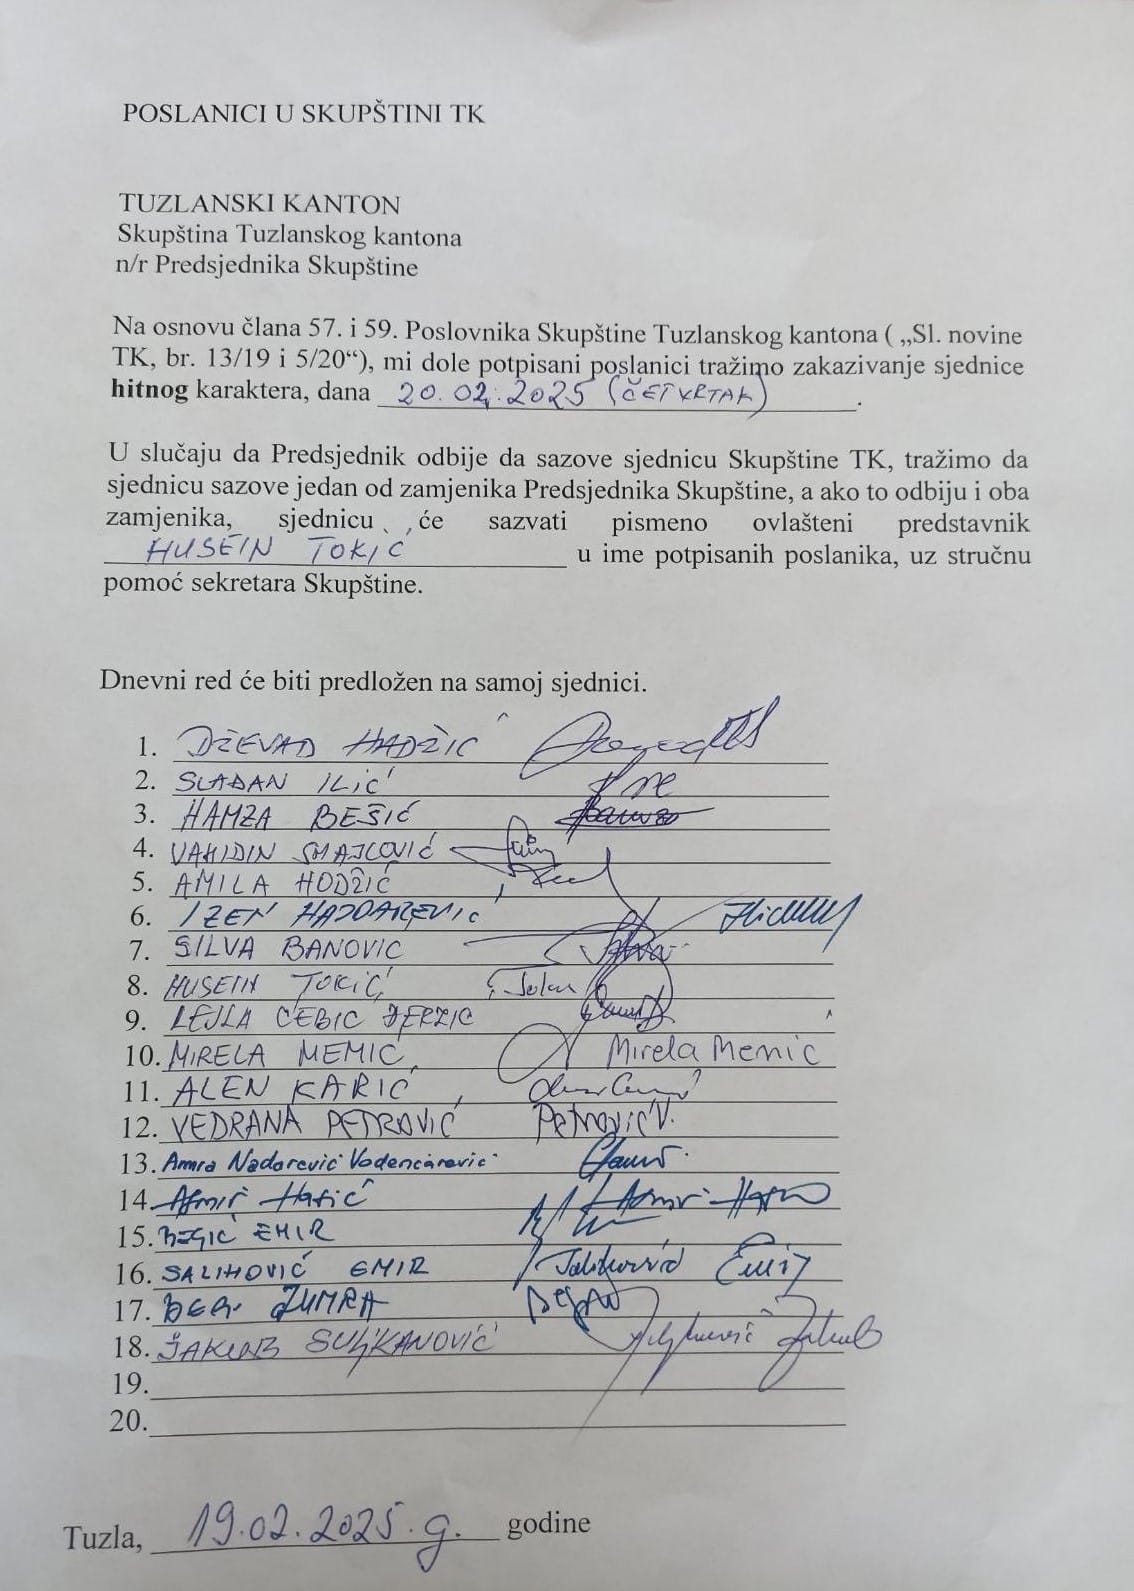 POSLANICI U SKUPŠTINI TK
TUZLANSKI KANTON
Skupština Tuzlanskog kantona
n/r Predsjednika Skupštine
Na osnovu člana 57. i 59. Poslovnika Skupštine Tuzlanskog kantona ( „Sl. novine
TK, br. 13/19 i 5/20“), mi dole potpisani poslanici tražimo zakazivanje sjednice
hitnog karaktera, dana 20.02.2025 (ČETVRTAK).
U slučaju da Predsjednik odbije da sazove sjednicu Skupštine TK, tražimo da
sjednicu sazove jedan od zamjenika Predsjednika Skupštine, a ako to odbiju i oba
zamjenika, sjednicu će sazvati pismeno ovlašteni predstavnik
HUSEIN TOKIĆ u ime potpisanih poslanika, uz stručnu
pomoć sekretara Skupštine.
Dnevni red će biti predložen na samoj sjednici.
1. DŽEVAD HADŽIĆ
2. SLAĐAN ILIĆ
3. HAMZA BEŠIĆ
4. VAHIDIN SMAJLOVIĆ
5. AMILA HODŽIĆ
6. IZET HADŽAREVIĆ
7. SILVA BANOVIC
8. HUSEIN TOKIĆ
9. LEJLA ČEBIĆ
10. MIRELA MEMIĆ Mirela Memic
11. ALEN KARIĆ
12. VEDRANA PETROVIĆ Petrović V.
13. Amra Nadarević Vodenčarević
14. Asmir Hasić
15. BEGIĆ EMIR
16. SALIHOVIĆ EMIR Salihović Emir
17. ZUMRA
18. JAKUB SULJKANOVIĆ
19.
20.
Tuzla, 19.02.2025.g. godine